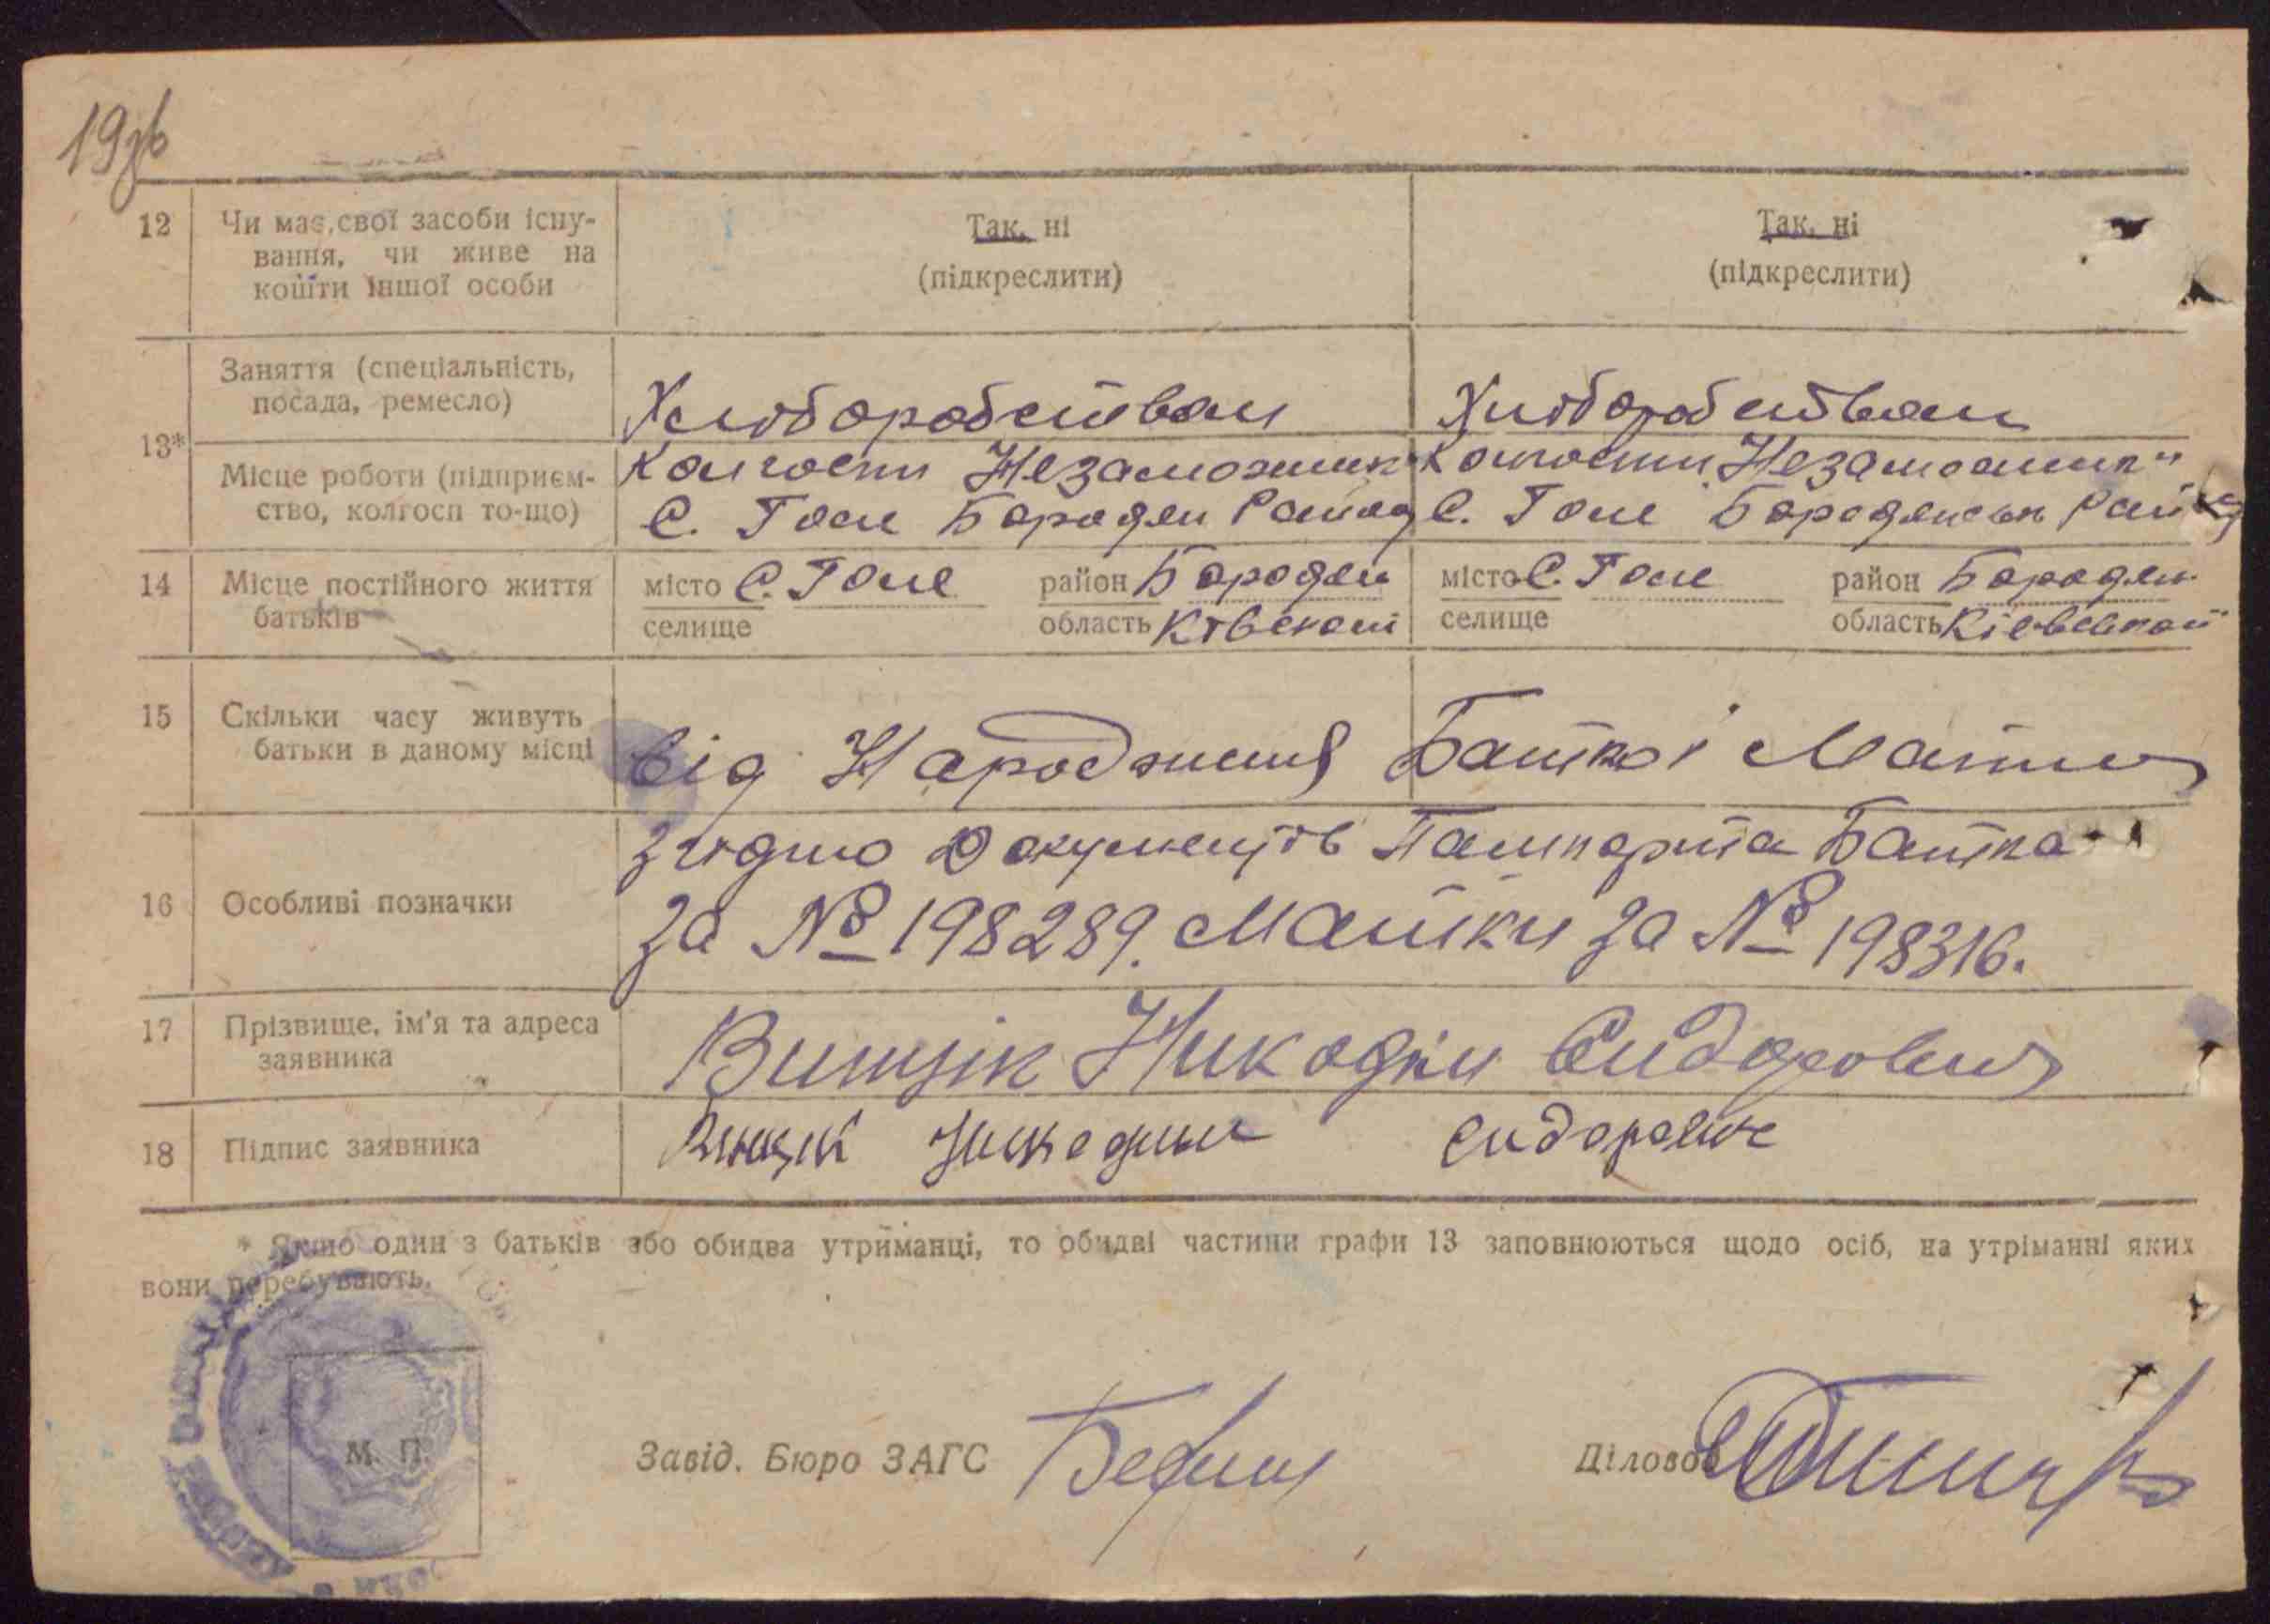 19зв
12 Чи має свої засоби існу- Так, ні Так, ні
вання, чи живе на (підкреслити) (підкреслити)
кошти іншої особи
Заняття (спеціальність, Хліборобством Хліборобством
посада, ремесло)
13*
Місце роботи (підприєм- Колгосп Незаможник Колгосп „Незаможник"
ство, колгосп то-що) С. Голе Бородян Район С. Голе Бородянськ Район
14 Місце постійного життя місто С. Голе район Бородян місто С. Голе район Бородян
батьків селище область Київской селище область Київской
15 Скільки часу живуть
батьки в даному місці від Народження Батько і Мати
згідно документів Пашпорта Батька
16 Особливі позначки за № 198289. Матки за № 198316.
17 Прізвище, ім'я та адреса Вищік Никодим Сидорович
заявника
18 Підпис заявника Вищік Никодим Сидорович
* Якщо один з батьків або обидва утриманці, то обидві частини графи 13 заповнюються щодо осіб, на утріманні яких
вони перебувають.
М. П. Завід. Бюро ЗАГС Діловод